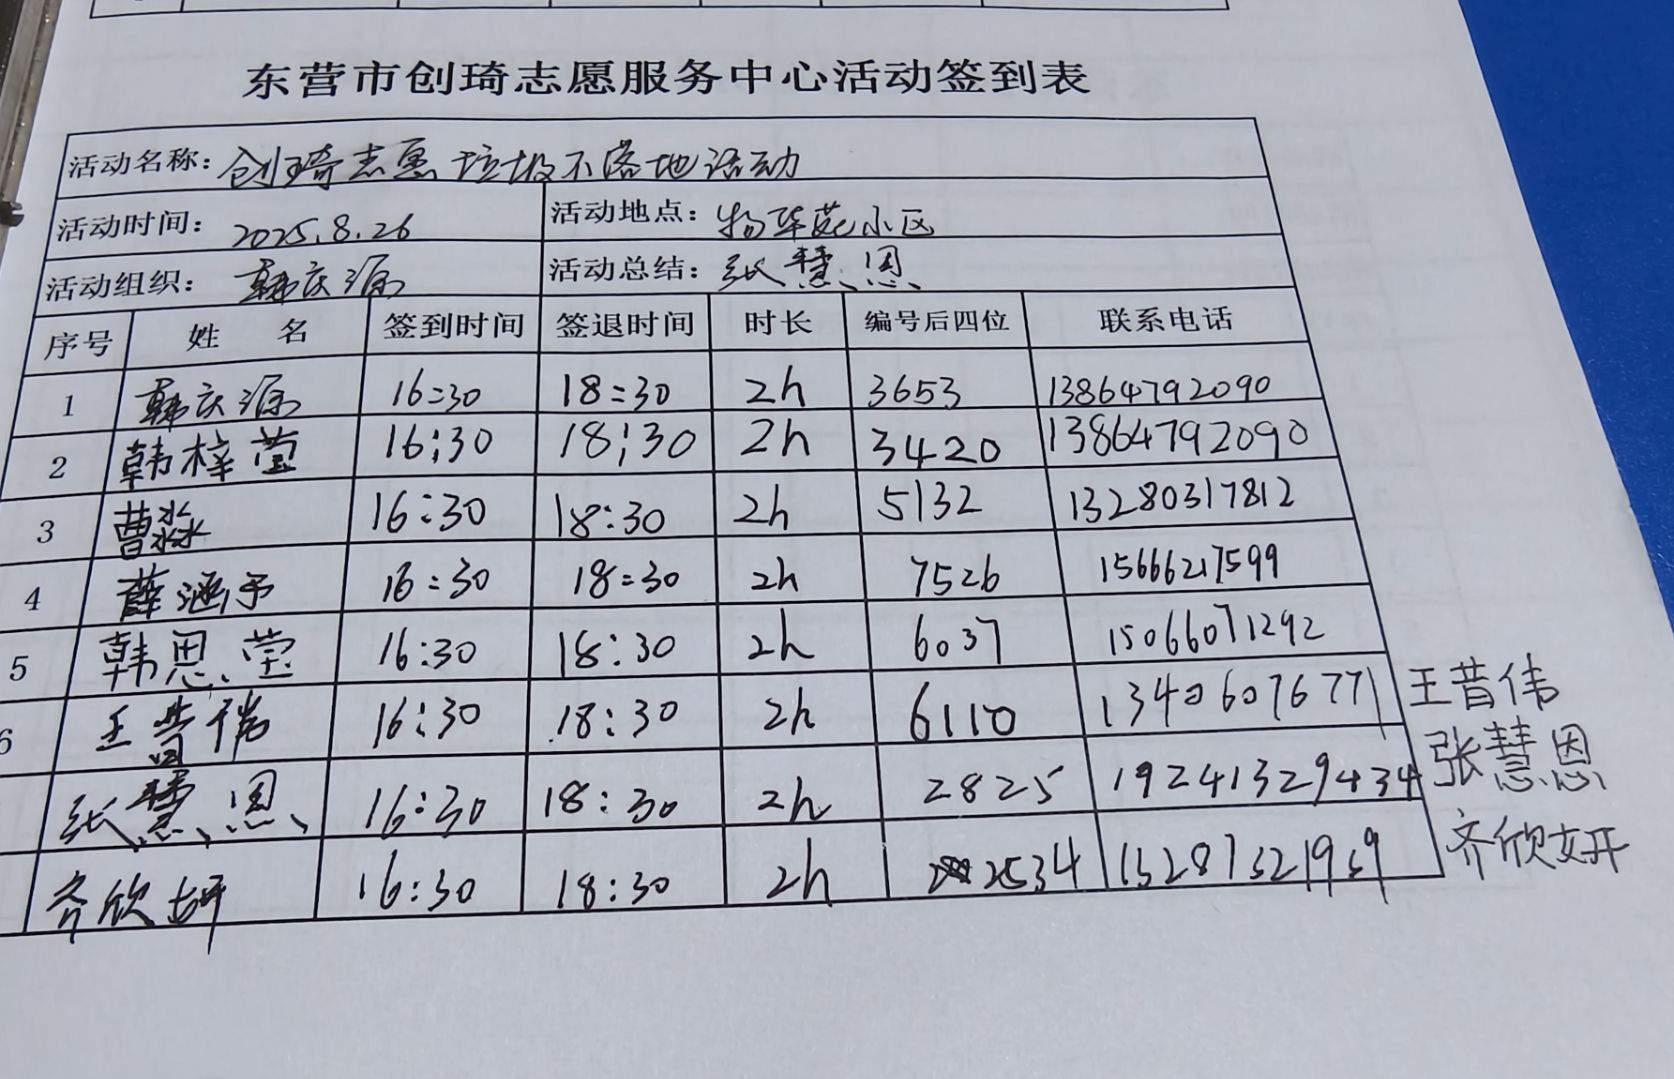 东营市创琦志愿服务中心活动签到表
活动名称：创琦志愿垃圾不落地活动
活动时间：2025.8.26 活动地点：物华苑小区
活动组织：韩庆源 活动总结：张慧恩
序号 姓名 签到时间 签退时间 时长 编号后四位 联系电话
1 韩庆源 16:30 18:30 2h 3653 13864792090
2 韩梓莹 16:30 18:30 2h 3420 13864792090
3 曹淼 16:30 18:30 2h 5132 13280317812
4 薛涵予 16:30 18:30 2h 7526 15666217599
5 韩思莹 16:30 18:30 2h 6037 15066071292
6 王昔伟 16:30 18:30 2h 6110 13406076771 王昔伟
张慧恩 16:30 18:30 2h 2825 19241329434 张慧恩
齐欣妍 16:30 18:30 2h 2534 13287321969 齐欣妍